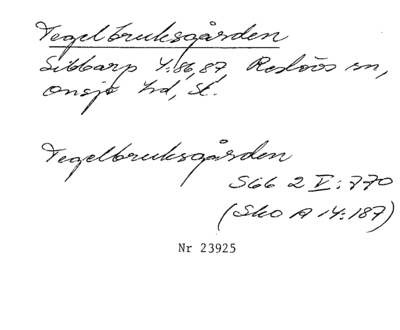 Tegelbruksgården
Sibbarp 4:86,87 Reslövs sn,
Onsjö hd, Sk.
Tegelbruksgården
SGG 2 V:770
(Sko A 14:187)
Nr 23925